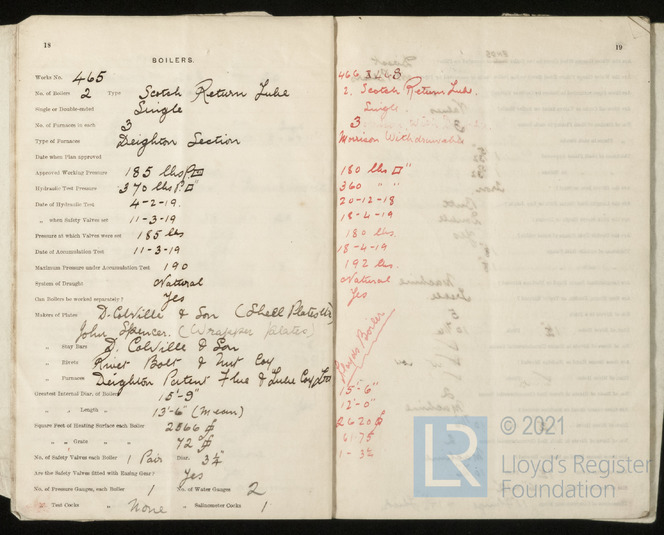 18
BOILERS.
Works No. 465
No. of Boilers 2 Type Scotch Return Tube
Single or Double-ended Single
No. of Furnaces in each 3
Type of Furnaces Deighton Section
Date when Plan approved
Approved Working Pressure 185 lbs P□"
Hydraulic Test Pressure 370 lbs P□"
Date of Hydraulic Test 4-2-19.
„ when Safety Valves set 11-3-19
Pressure at which Valves were set 185 lbs
Date of Accumulation Test 11-3-19
Maximum Pressure under Accumulation Test 190
System of Draught Natural
Can Boilers be worked separately? Yes
Makers of Plates D. Colville & Son (Shell Plates
John Spencer. (Wrapper plates)
„ Stay Bars D. Colville & Son
„ Rivets Rivet Bolt & Nut Coy
„ Furnaces Deighton Patent Flue & Tube Coy Ld
Greatest Internal Diar. of Boilers 15'-9"
„ „ Length „ 13'-6" (Mean)
Square Feet of Heating Surface each Boiler 2866
„ „ Grate „ „ 72
No. of Safety Valves each Boiler 1 Pair Diar. 3¼"
Are the Safety Valves fitted with Easing Gear? Yes
No. of Pressure Gauges, each Boiler 1 No. of Water Gauges 2
„ Test Cocks „ None „ Salinometer Cocks 1
19
2. Scotch Return Tube.
Single.
3
Morrison Withdrawable
180 lbs □"
360 " "
20-12-18
18-4-19
180 lbs.
18-4-19
192 lbs.
Natural
Yes
Boiler
15'-6"
12'-0"
2620
61·75
© 2021
LR
Lloyd's Register
Foundation